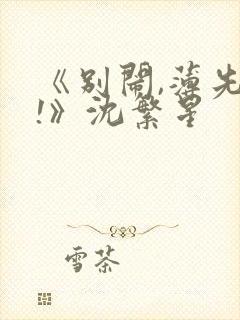 《别闹,薄先
!》沈繁星
雪茶